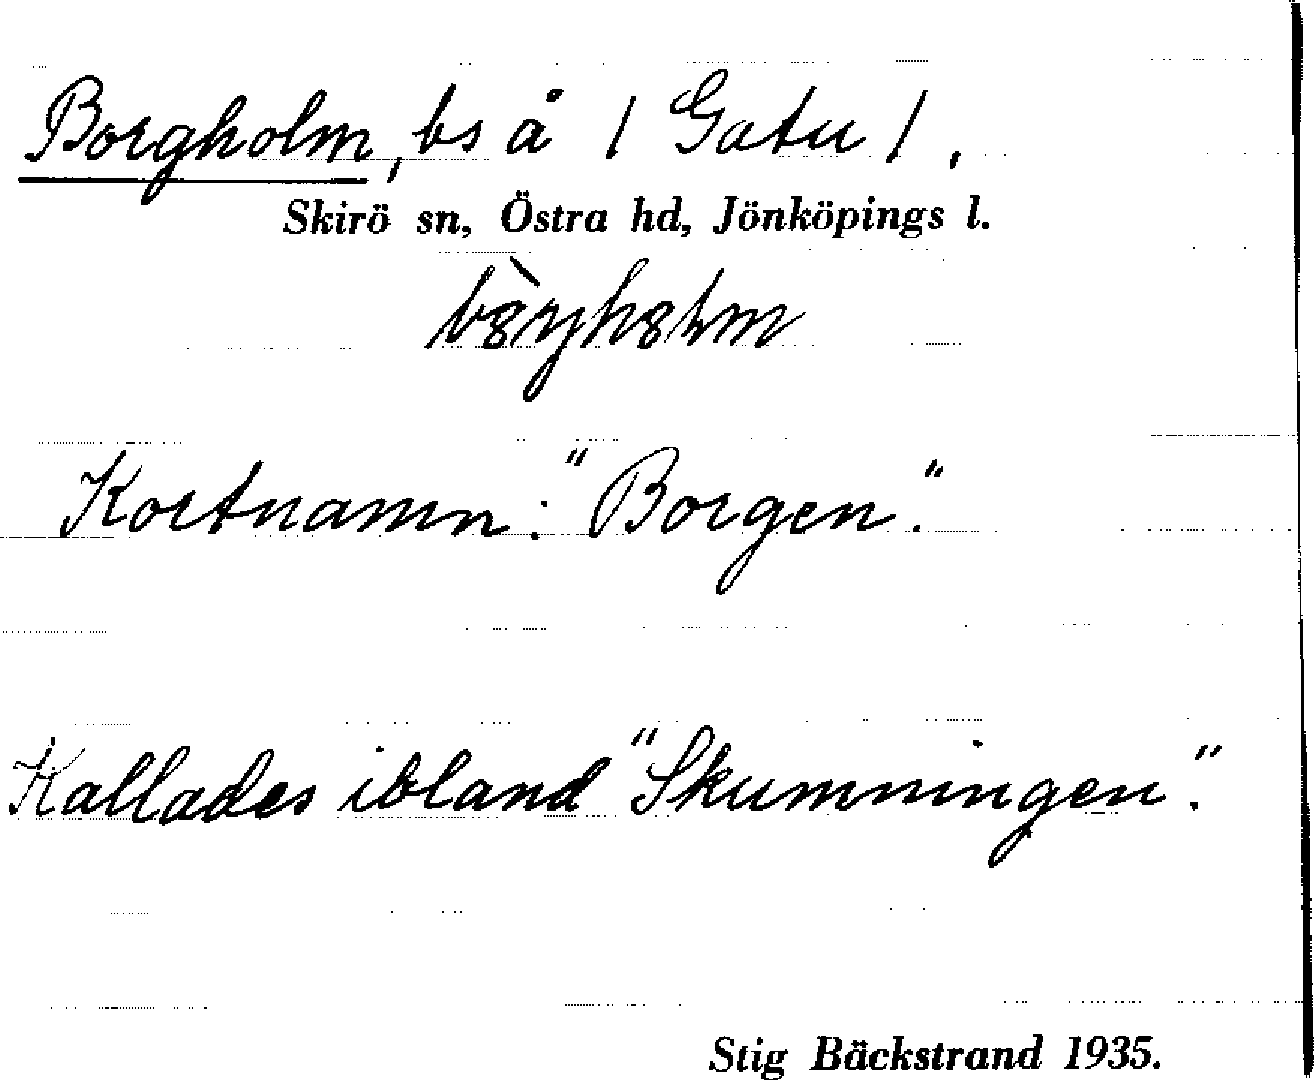 Borgholm, bs å / Gatu /.
Skirö sn, Östra hd, Jönköpings l.
Kortnamn: "Borgen".
Kallades ibland "Skumningen".
Stig Bäckstrand 1935.